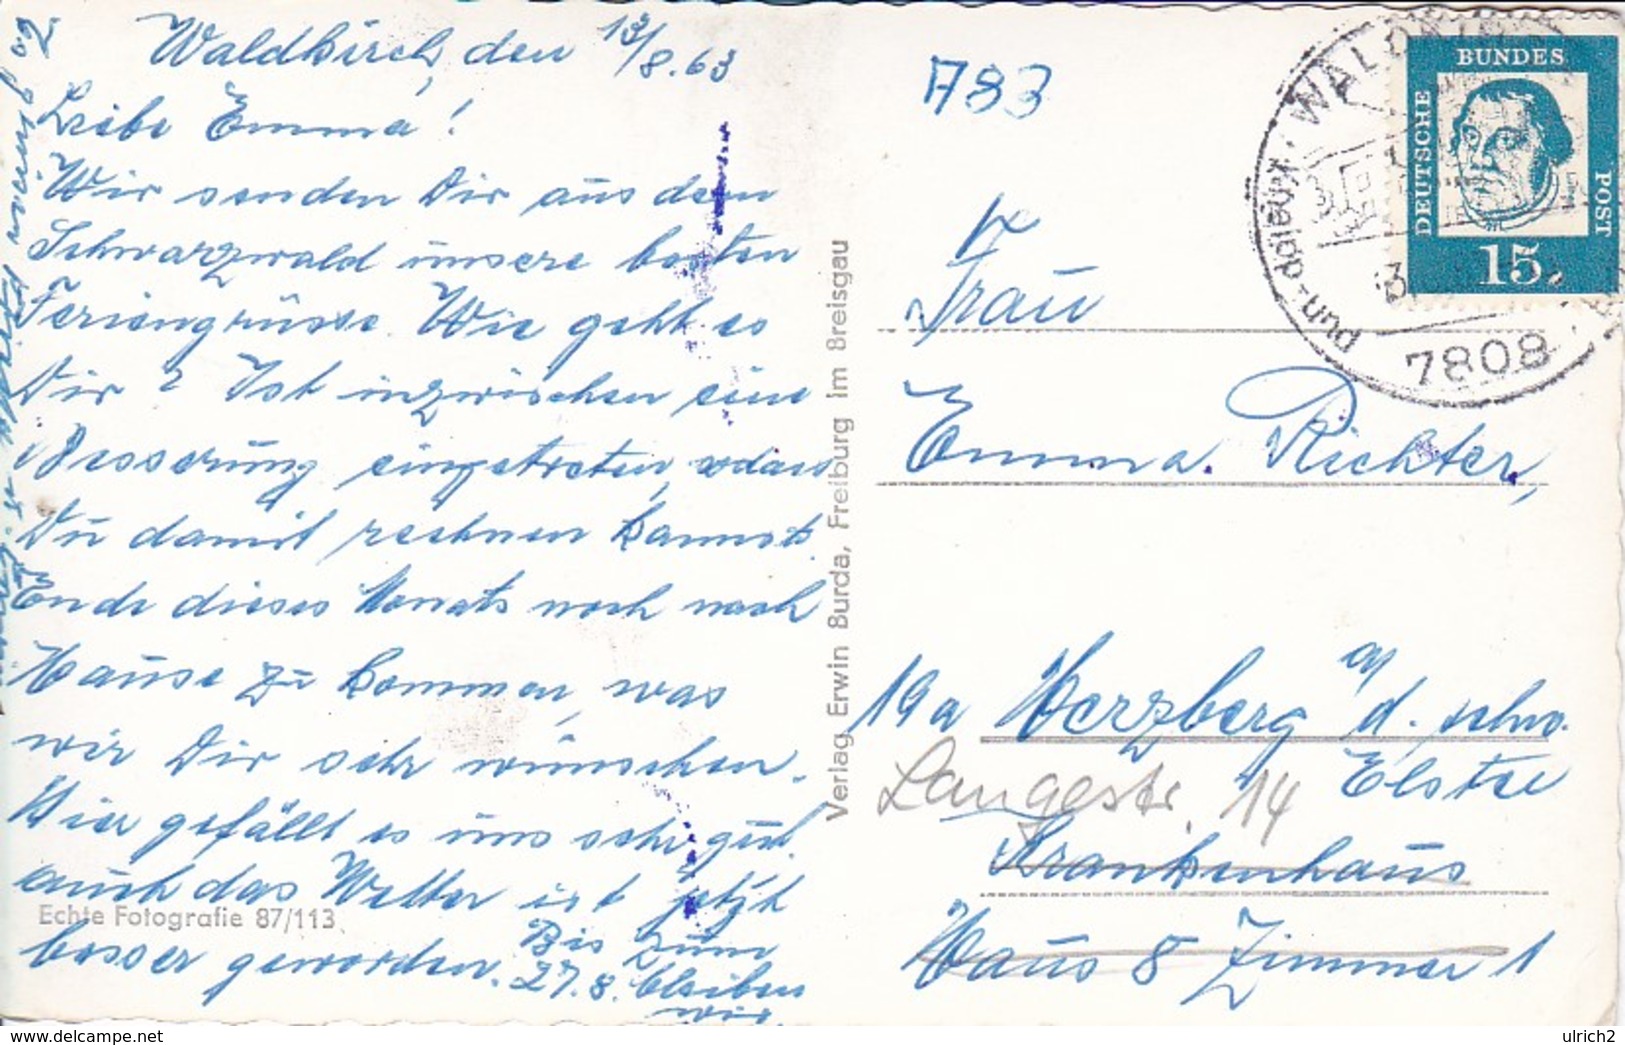 Waldkirch, den 13/8.63
Liebe Emma!
Wir senden Dir aus dem
Schwarzwald unsere besten
Feriengrüsse. Wie geht es
Dir? Ist inzwischen eine
Besserung eingetreten, sodass
Du damit rechnen kannst
Ende dieses Monats noch nach
Hause zu kommen, was
wir Dir sehr wünschen.
Hier gefällt es uns sehr gut.
auch das Wetter ist jetzt
besser geworden.
Bis zum
27.8. bleiben
wir
Echte Fotografie 87/113
Verlag Erwin Burda, Freiburg im Breisgau
A83
BUNDES
DEUTSCHE
POST
15
WALDKIRCH
Kneipp- und
7808
Frau
Emma Richter,
19a Herzberg a/d. schw.
Elster
Langestr. 14
Krankenhaus
Haus 8 Zimmer 1
ulrich2